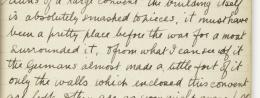 ruins of a large convent the building itself
is absolutely smashed to pieces, it must have
been a pretty place before the war for a moat
surrounded it, & from what I can see of it
the Germans almost made a little fort of it
only the walls which enclosed this convent
are left